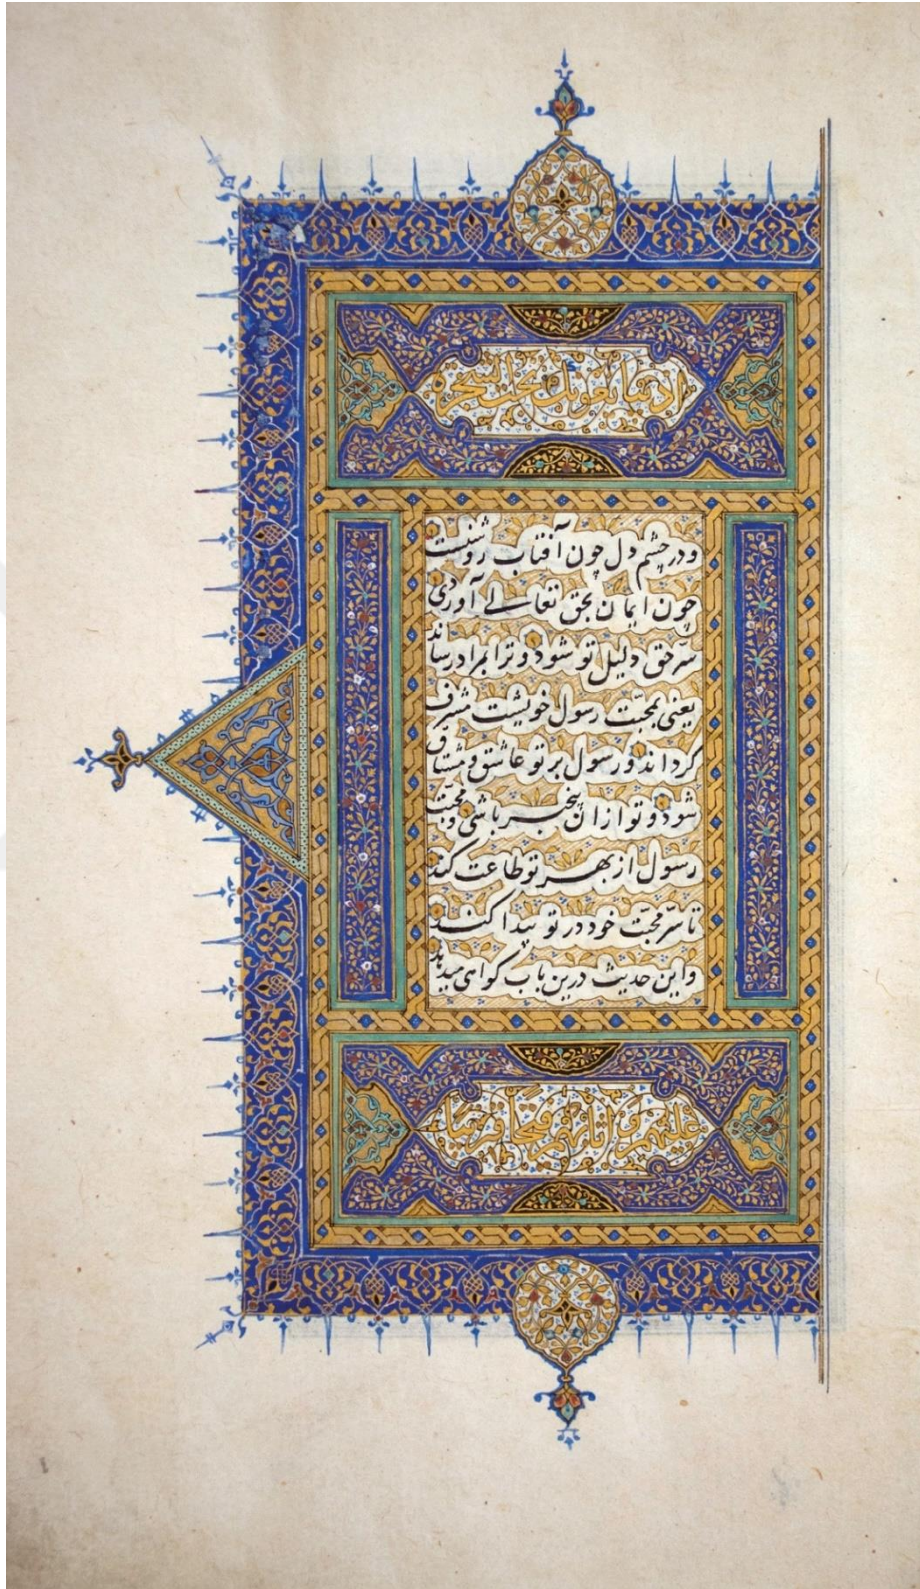 اذ يبايعونك تحت الشجرة
و در چشم دل چون آفتاب روشنست
چون ایمان بحق تعالی آوردی
سرّ حق دلیل تو شود و ترا بمراد رساند
یعنی بمحبّت رسول خویشت مشرف
کرداند و رسول بر تو عاشق و مشتاق
شود و تو ازان بیخبر باشی و محبّت
رسول از بهر تو طاعت کند
تا سرّ محبّت خود در تو پیدا کند
و این حدیث درین باب کواهی میدهد
عليهم و اثابهم فتحا قريبا